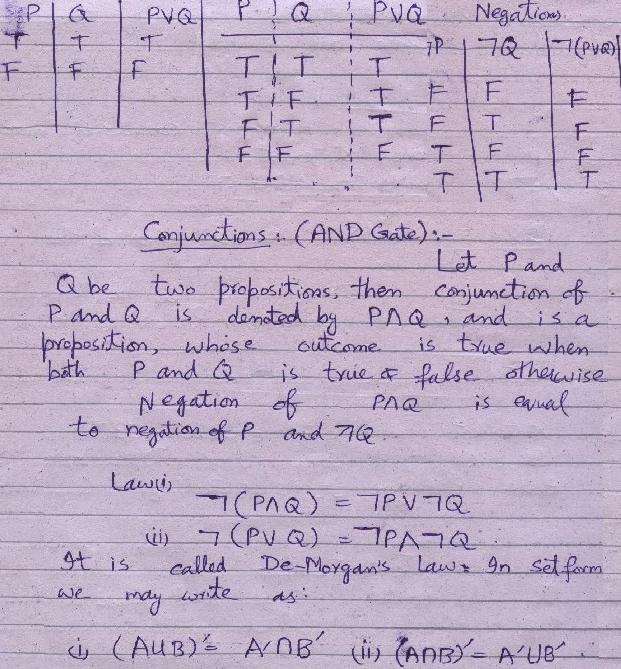 P Q PVQ P Q PVQ Negations
T T T ¬P ¬Q ¬(PVQ)
F F F T T T
T F T F F F
F T T F T F
F F F T F F
T T T
Conjunctions: (AND Gate):-
Let P and
Q be two propositions, then conjunction of
P and Q is denoted by P∧Q, and is a
proposition, whose outcome is true when
both P and Q is true & false otherwise
Negation of P∧Q is equal
to negation of P and ¬Q
Law(i)
¬(P∧Q) = ¬PV¬Q
(ii) ¬(PVQ) = ¬P∧¬Q
It is called De-Morgan's Law: In set form
we may write as:
(i) (A∪B)′= A′∩B′ (ii) (A∩B)′= A′∪B′